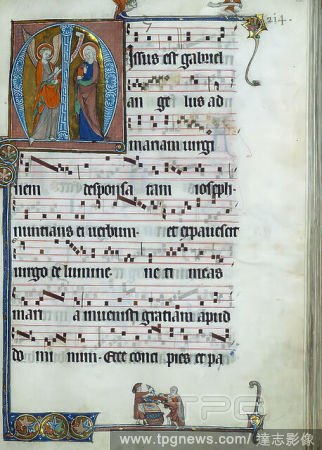 214.
Issus est gabriel
an ge lus ad
mariam virgi
nem desponsa tam ioseph
nuntians ei verbum. et expavescit
virgo de lumine ne timeas
mari a invenisti gratiam apud
do mi num. Ecce conci pies et pa
TPG
www.tpgnews.com/達志影像